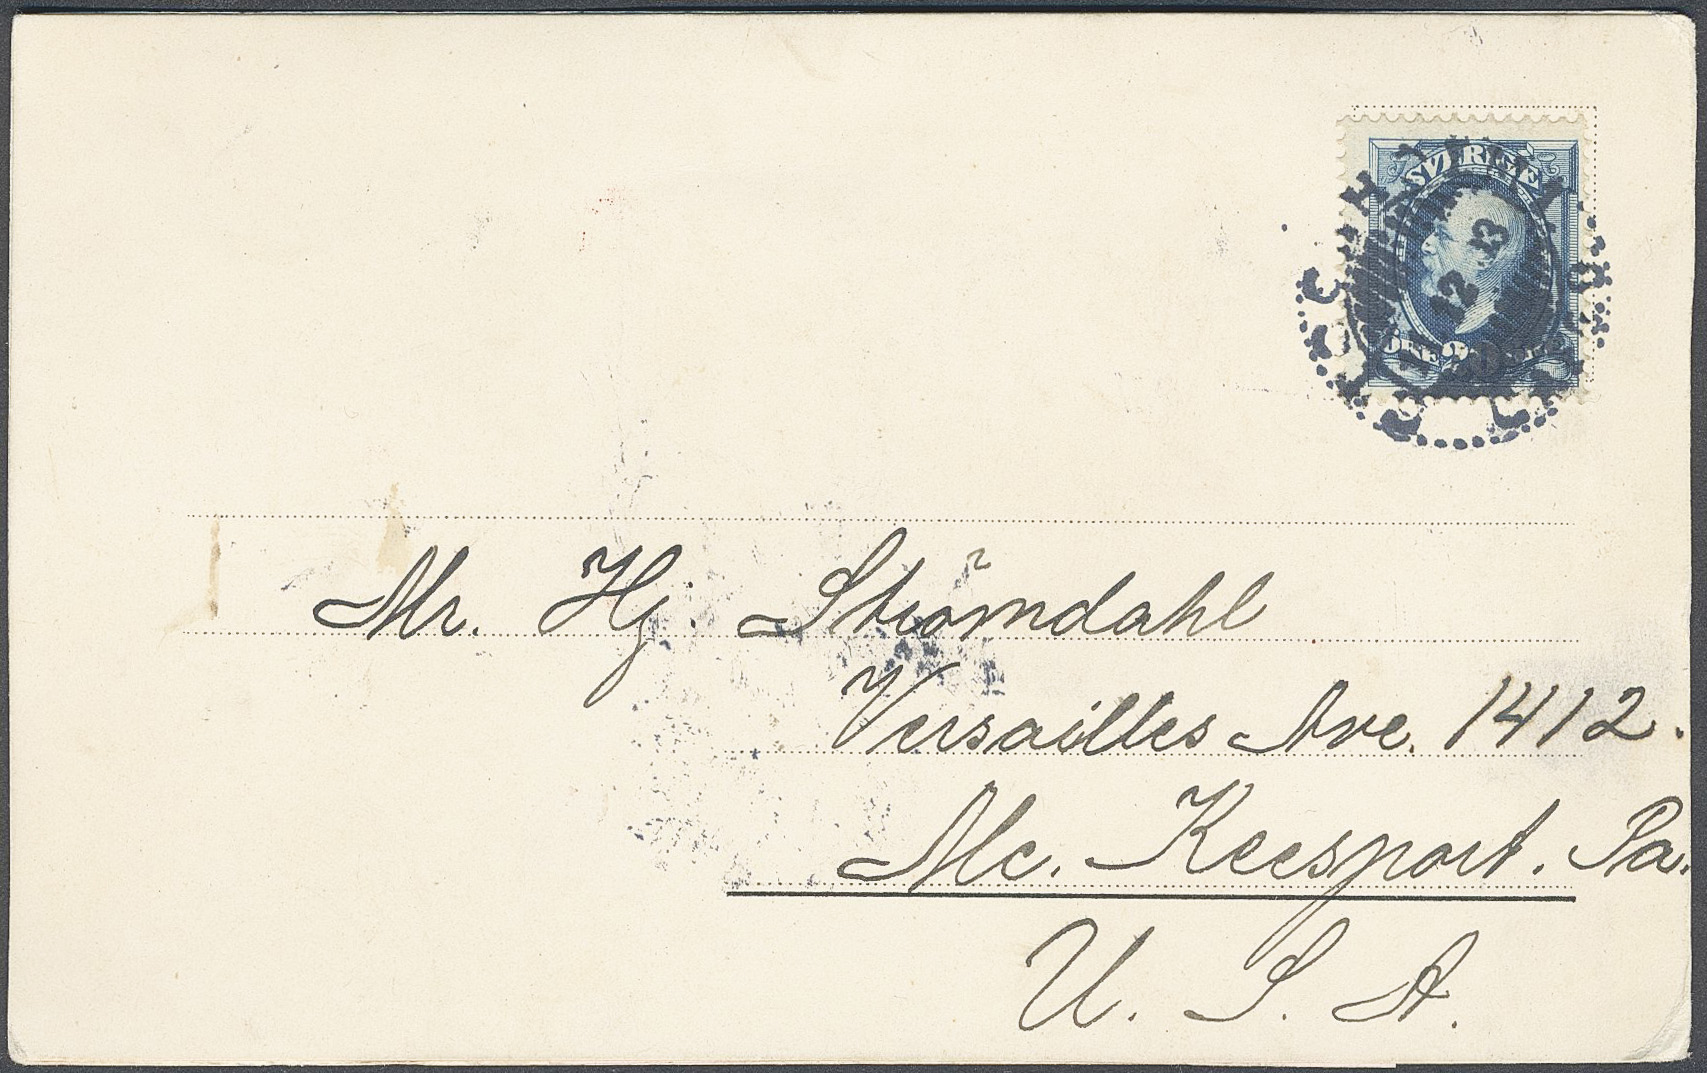 SVERIGE
12 13
ÖRE 20
Mr. Hj. Strömdahl
Versailles Ave. 1412.
Mc. Keesport. Pa.
U. S. A.